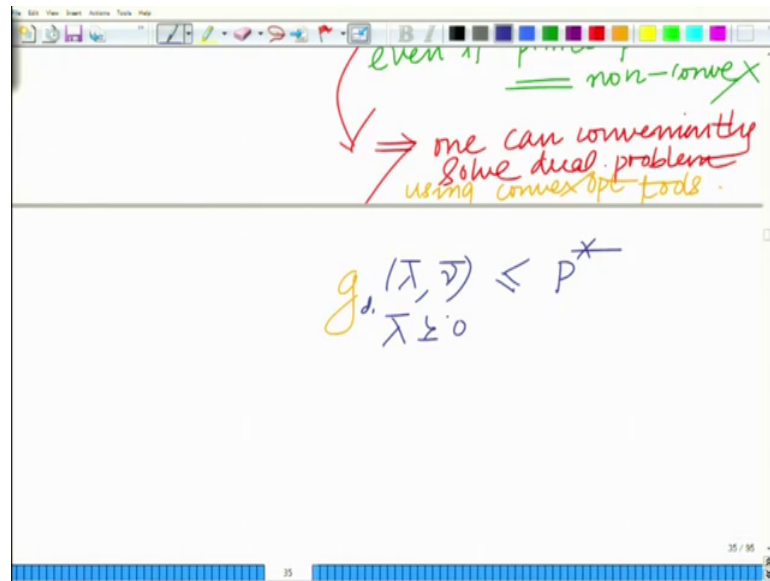 File Edit View Insert Actions Tools Help
even if
non-convex
⇒ one can conveniently
solve dual problem
using convex opt tools.
g_d (λ̄, ν̄) ≤ P*
λ̄ ≥ 0
35 / 95
35